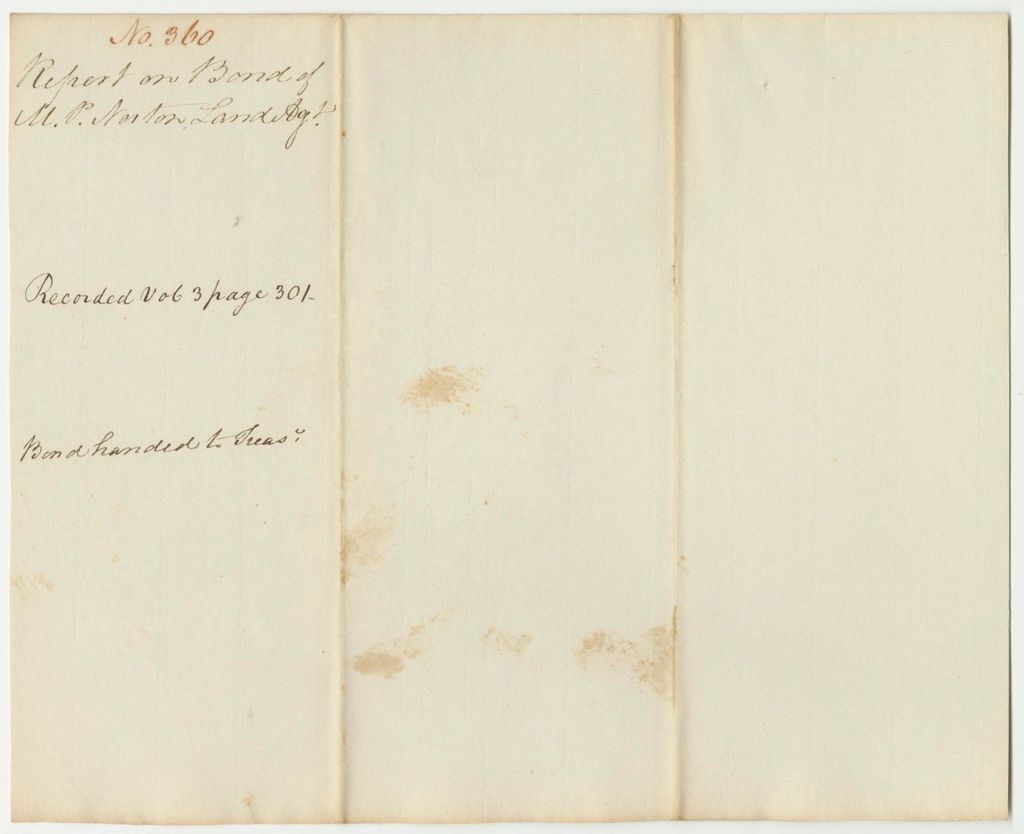 No. 360
Report on Bond of
M. P. Norton, Land Agt.
Recorded Vol 3 page 301-
Bond handed to Treasr